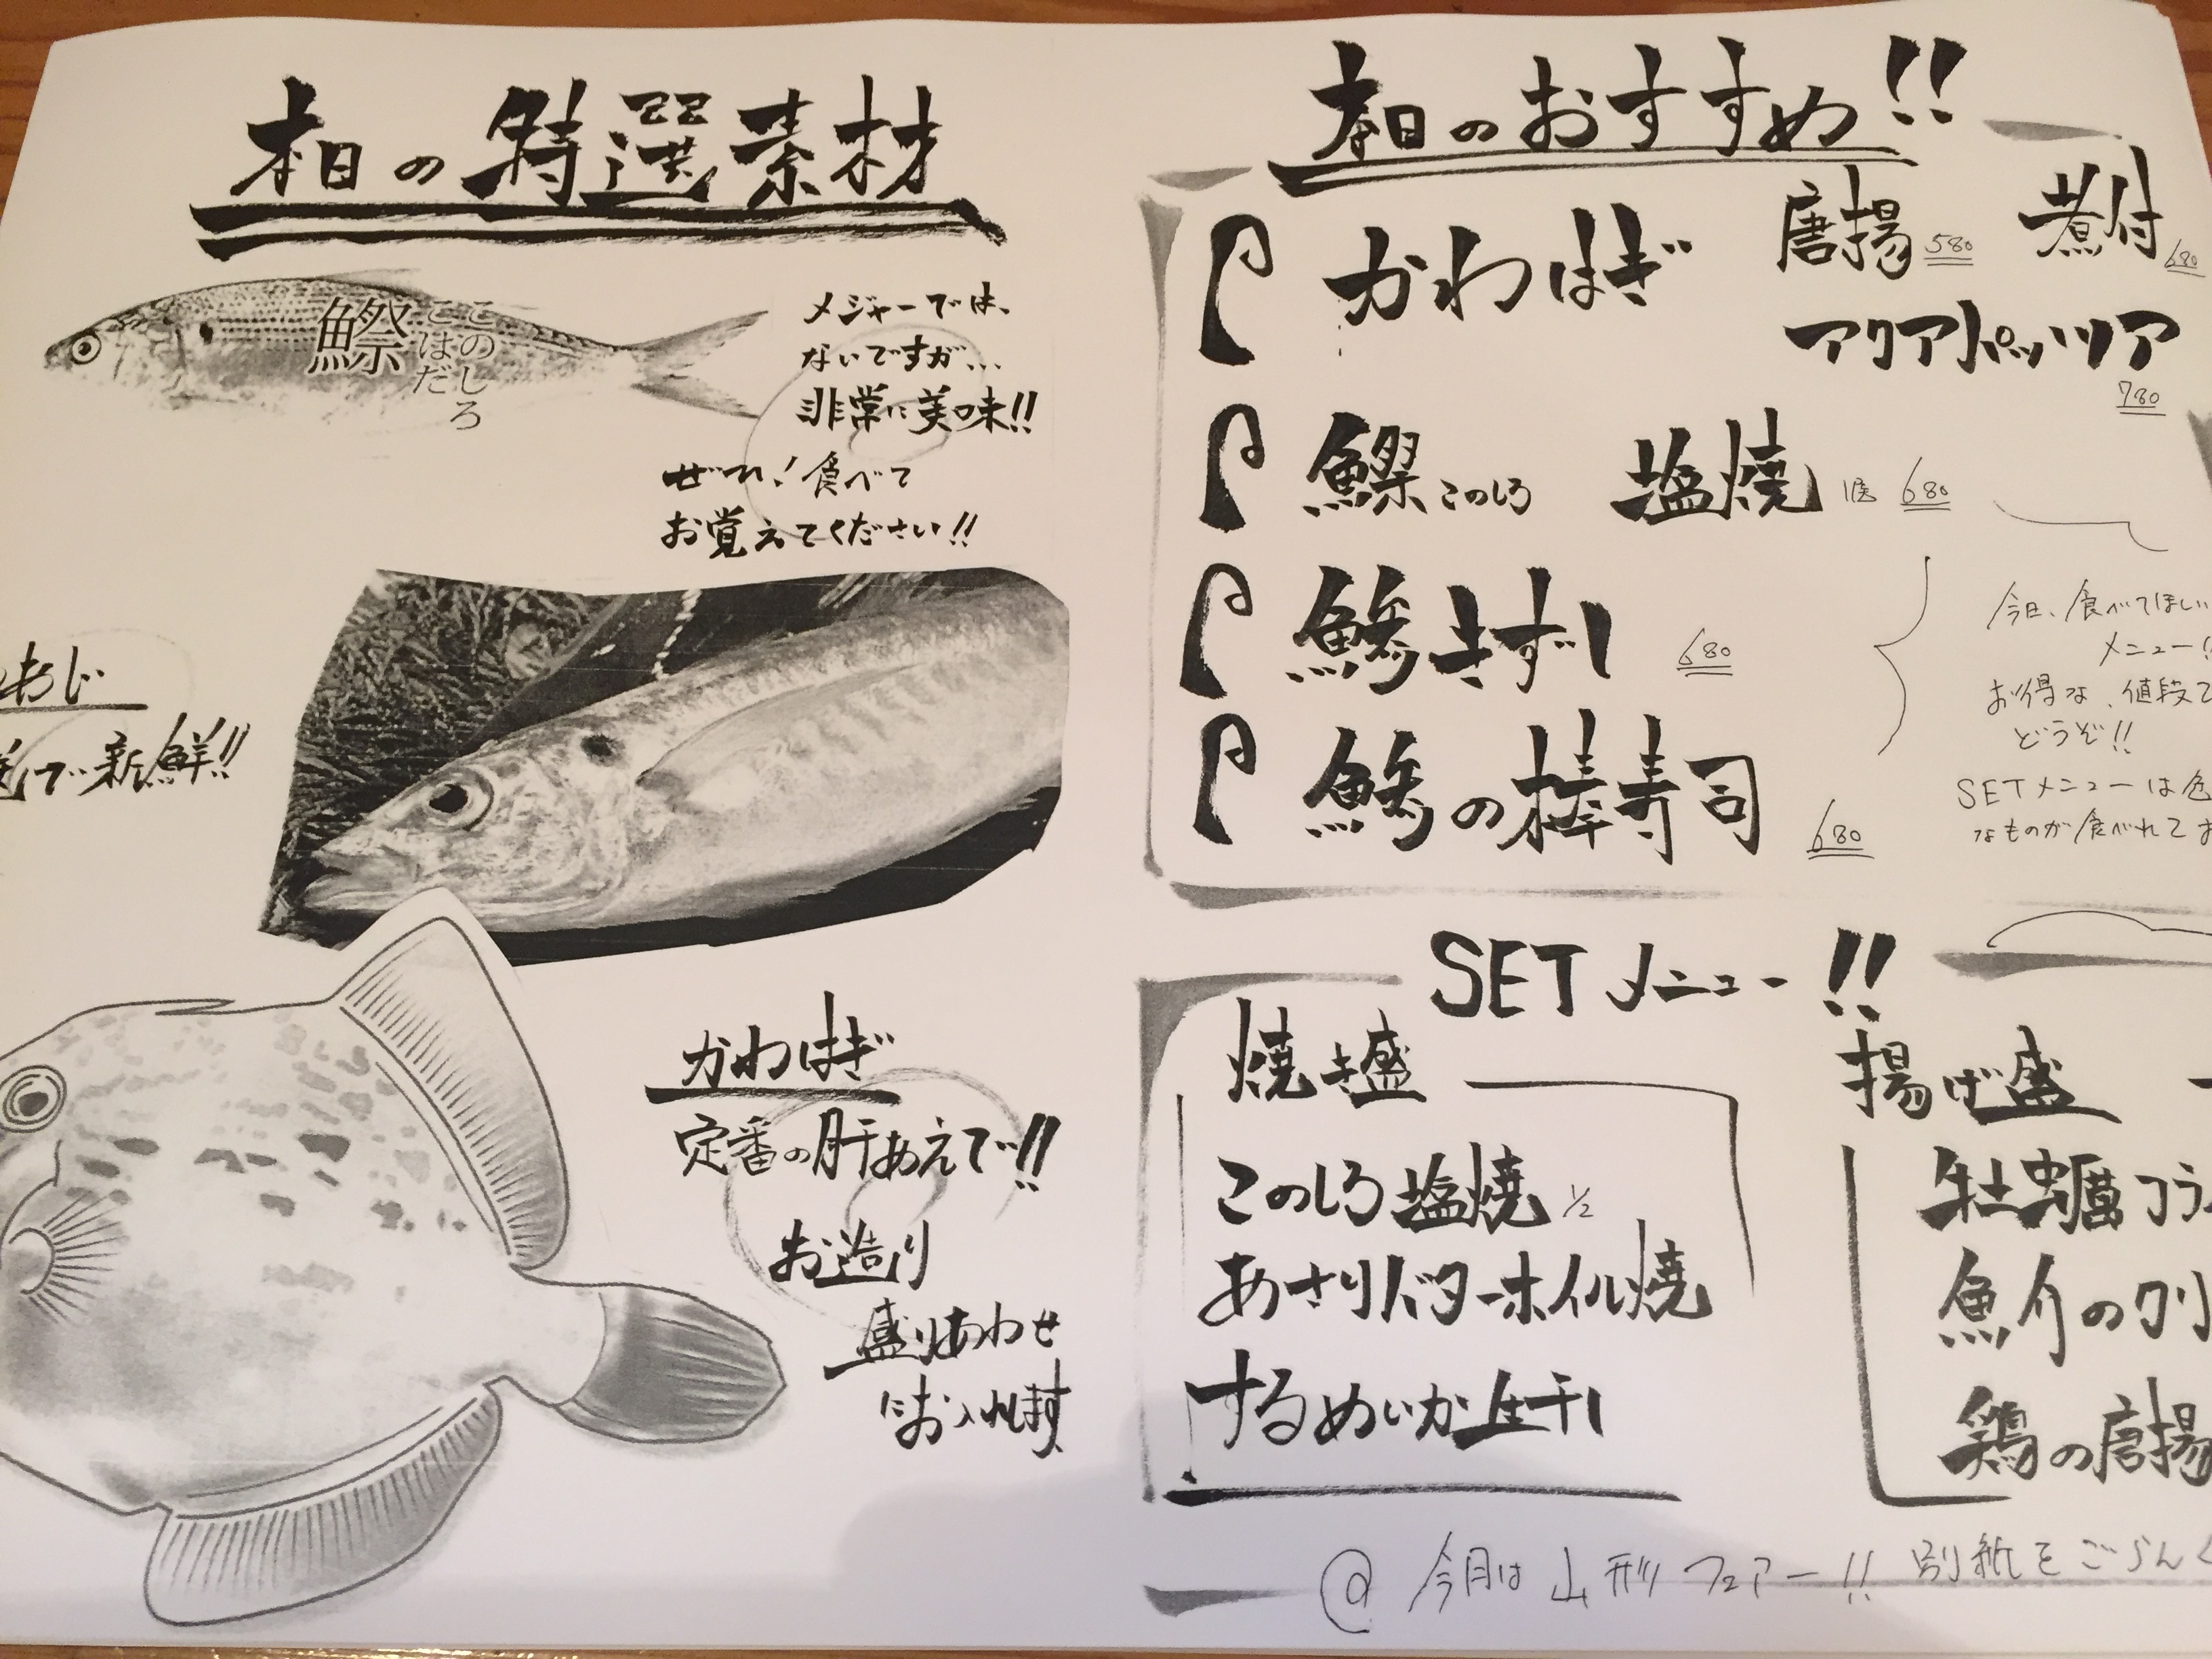 本日の特選素材
鰶
このしろ
こはだ
メジャーでは、
ないですが…
非常に美味!!
ぜひ!食べて
お覚えてください!!
あじ
で新鮮!!
かわはぎ
定番の肝あえで!!
お造り
盛りあわせ
にお入れします
本日のおすすめ!!
かわはぎ 唐揚 580 煮付 680
アクアパッツァ
780
鰶 このしろ 塩焼 1尾 680
鯵きずし 680
鯵の棒寿司 680
今日、食べてほしい
メニュー!
お得な、値段で
どうぞ!!
SETメニューは色
なものが食べれてお
SETメニュー!!
焼き盛
このしろ塩焼 1/2
あさりバターホイル焼
するめいか生干し
揚げ盛
牡蠣フラ
魚介のクリ
鶏の唐揚
@ 今月は山形フェアー!! 別紙をごらんく